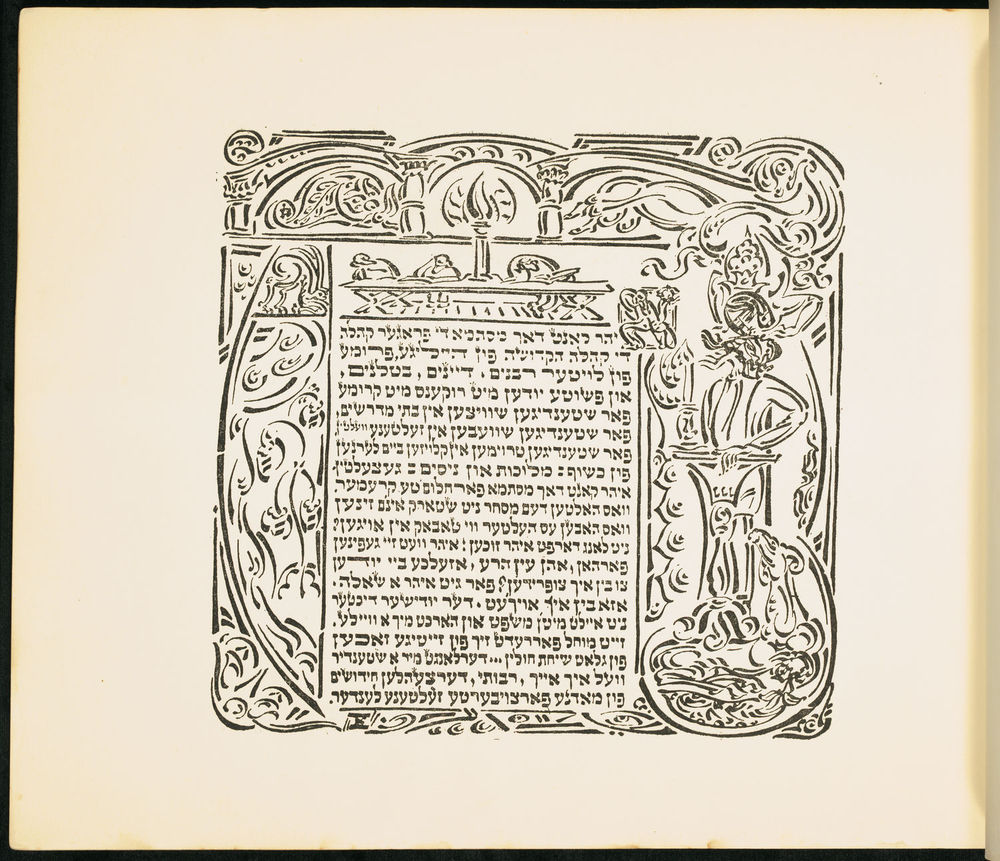 איהר קאנט דאך מסתמא די פראגער קהלה
די קהלה הקדושה פון הייליגע, פרומע
פון לויטער רבנים, דיינים, בטלנים,
און פשוטע יודען מיט רוקענס מיט קרומע
פאר שטענדיגען שוויצען אין בתי מדרשים,
פאר שטענדיגען שוועבען אין זעלטענע וועלטין
פאר שטענדיגען טרוימען אין קלויזען ביים לערנען
פון כשוף־מלוכות און ניסים־געצעלטין.
איהר קאנט דאך מסתמא פאר חלומ׳טע קרעמער
וואס האלטען דעם מסחר ניט שטארק אינם זינען
וואס האבען עס העלטער ווי טאבאק אין אויגען?
ניט לאנג דארפט איהר זוכען! איהר וועט זיי געפינען
פארהאן, אהן עין הרע, אזעלכע ביי יודען
צו בין איך צופרידען? פאר גיט איהר א שאלה.
אזא בין איך אויך עט. דער יודישער דיכטער
ניט איילט מיט׳ן משפט און הארכט מיך א וויילע.
זייט מוחל פאררעדט זיך פון זייטיגע זאכען
פון גלאט שיחת חולין... דערלאנגט מיר א שטענדיר
וועל איך אייך, רבותי, דערצעהלען חידושים
פון מאדנע פארצויבערטע זעלטענע לענדער